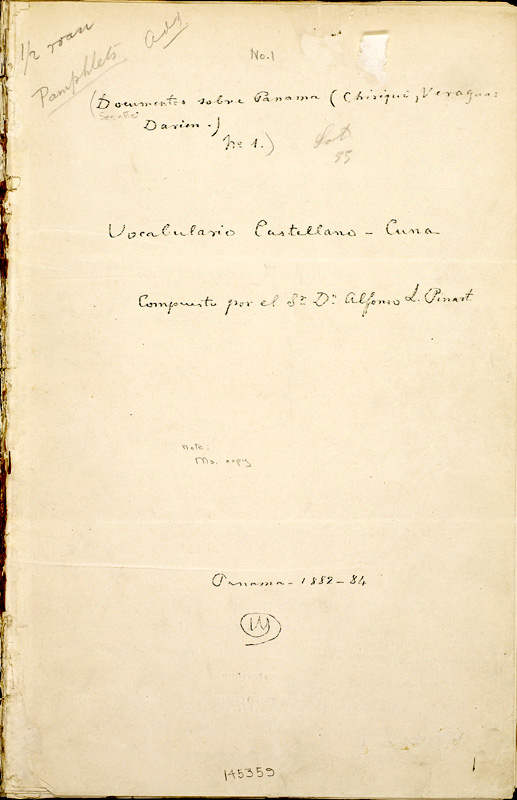 1/2 roan
Pamphlets
Add
No. 1
(Documentos sobre Panama (Chiriqui, Veragua:
Darien.)
Nº 1.)
55
Vocabulario Castellano - Cuna
Compuesto por el Sr. Dn. Alfonso L. Pinart
note:
Ms. copy
Panama - 1882-84
145359
1